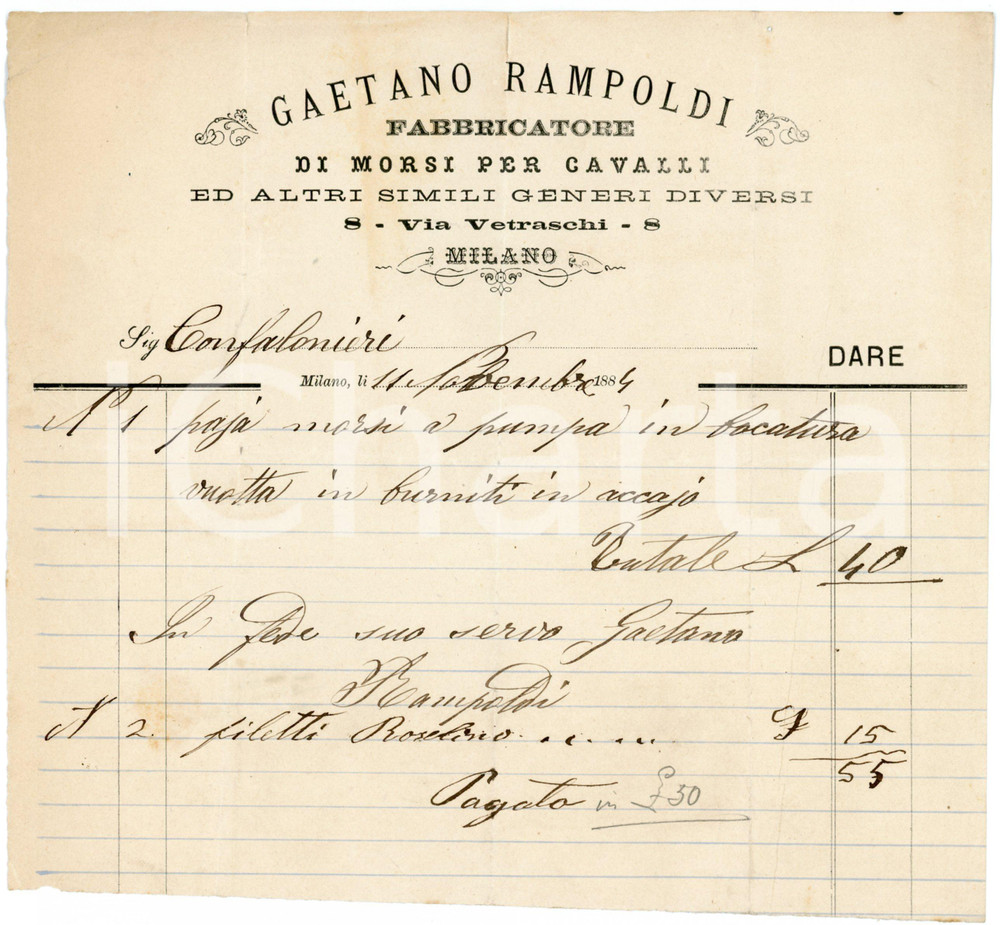 GAETANO RAMPOLDI
FABBRICATORE
DI MORSI PER CAVALLI
ED ALTRI SIMILI GENERI DIVERSI
8 - Via Vetraschi - 8
MILANO
Sig Confalonieri
DARE
Milano, li 11 Novembre 1884
N 1 paja morsi a pumpa in bocatura
vuotta in burniti in accajo
Tutale L 40
In fede suo servo Gaetano
Rampoldi
N 2. filetti £ 15
55
Pagato in £ 50
ICharta